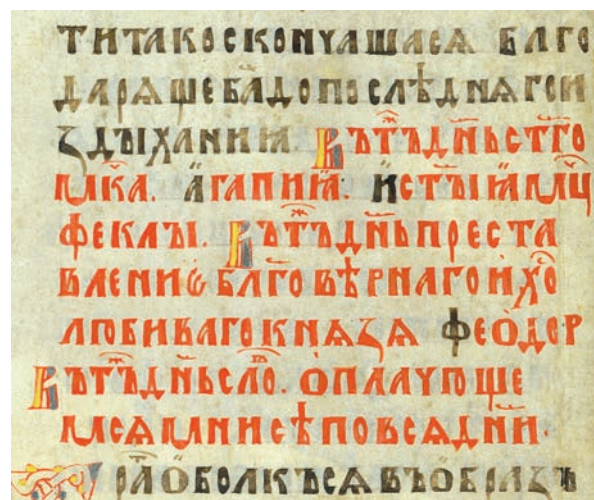 ТИТАКОСКОНЧАШАСѦ БЛГО
ДАРѦЩЕБ҃АДОПОСЛѢДНѦГОИ
ꙁДЫХАНИꙖ. ВЪТ҃ЪДН҃ЬСТ҃ГО
МКА҃. АГАПИꙖ. ИСТ҃ЫꙖМЦ
ФЕКЛЫ. ВЪТ҃ЪДН҃ЬПРЕСТА
ВЛЕНИѤБЛГ҃ОВѢРНАГОИХО҃
ЛЮБИВАГОКНѦꙀѦ ФЕОДОР
ВЪТ҃ЪДН҃ЬСЛО҃. ОПЛАЧЮЩЕ
МСѦМНИСѢПОВСѦДНИ҃.
РА҃ОБОЛКЪСѦВЪОБРАꙀЪ